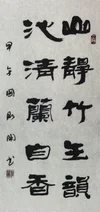 山靜竹生韻
池清蘭自香
甲午國
書